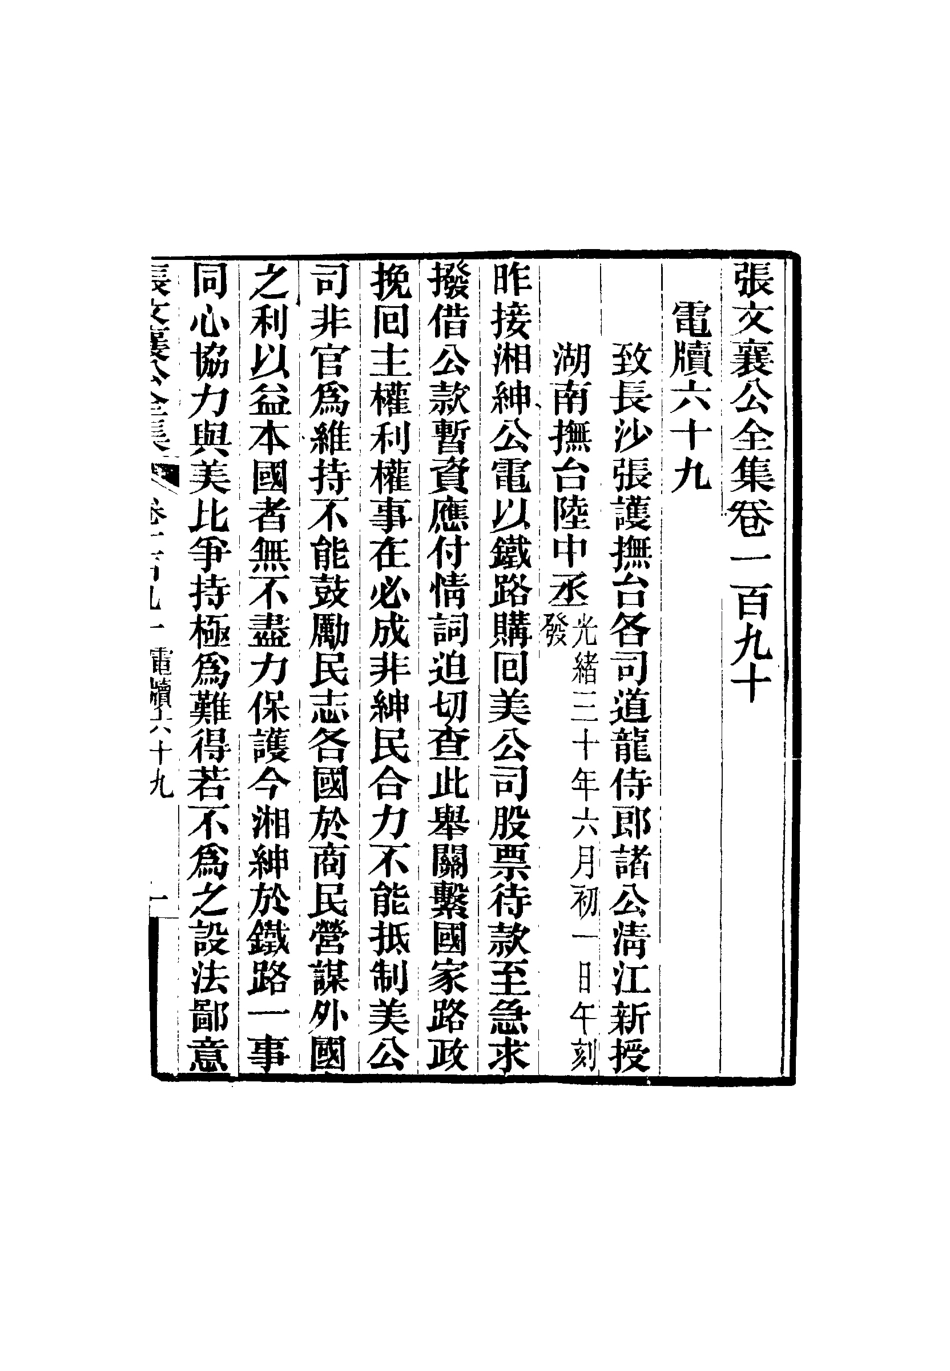 張文襄公全集卷一百九十
電牘六十九
致長沙張護撫台各司道龍侍郎諸公清江新授
湖南撫台陸中丞光緒三十年六月初一日午刻
發
昨接湘紳公電以鐵路購回美公司股票待款至急求
撥借公款暫資應付情詞迫切查此舉關繫國家路政
挽回主權利權事在必成非紳民合力不能抵制美公
司非官為維持不能鼓勵民志各國於商民營謀外國
之利以益本國者無不盡力保護今湘紳於鐵路一事
同心協力與美比爭持極為難得若不為之設法鄙意
張文襄公全集 卷一百九十 電牘六十九 一